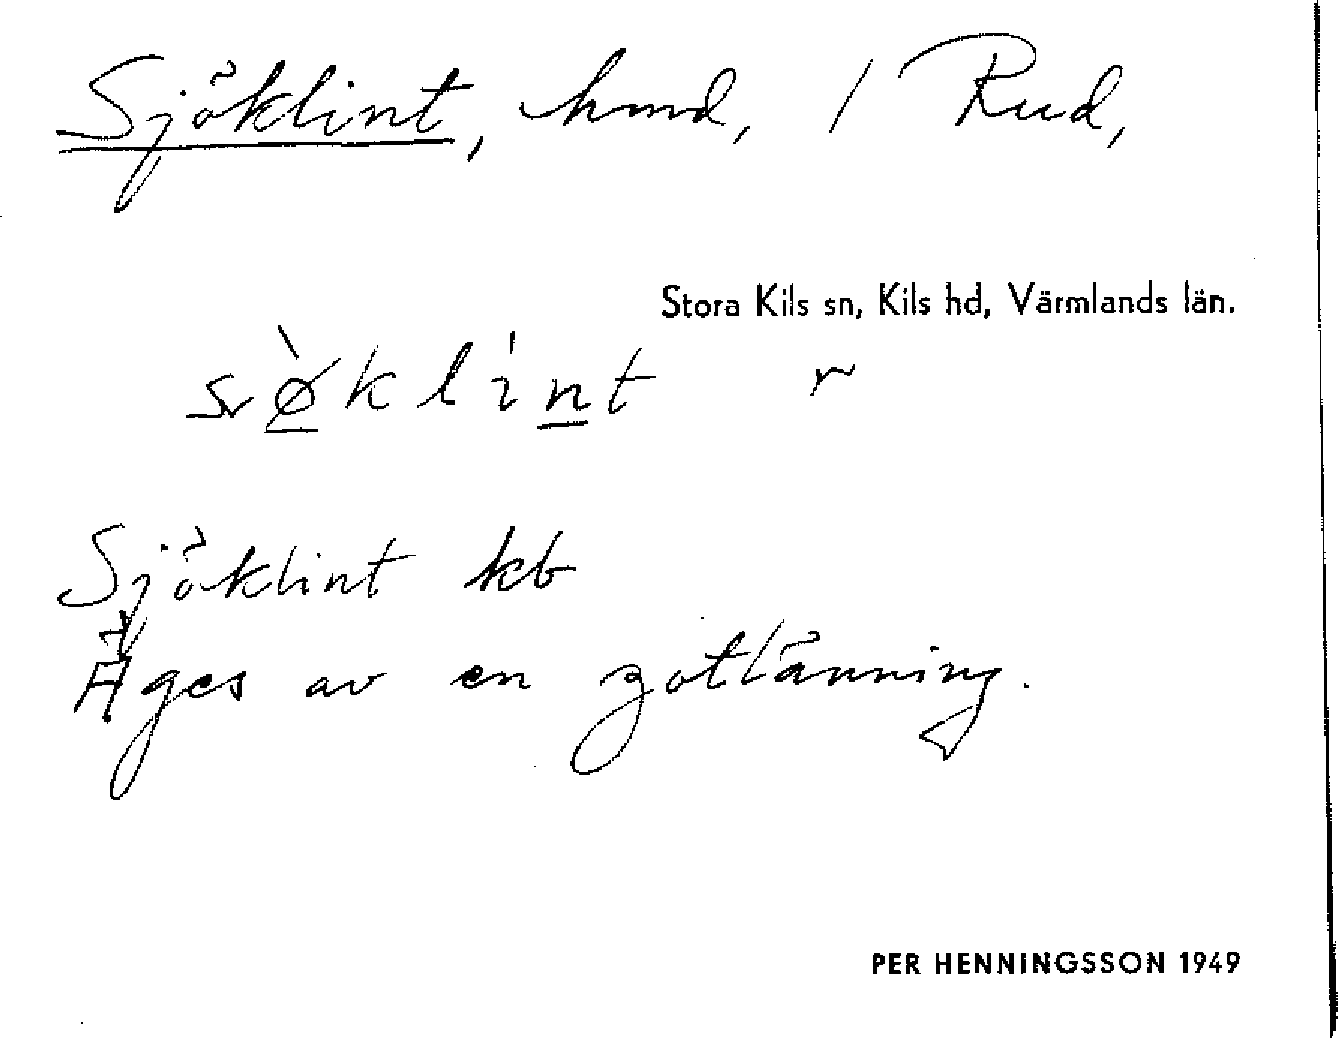 Sjöklint, hmd, / Rud,
Stora Kils sn, Kils hd, Värmlands län.
sø̀klı̍nt r
Sjöklint kb
Äges av en gotlänning.
PER HENNINGSSON 1949